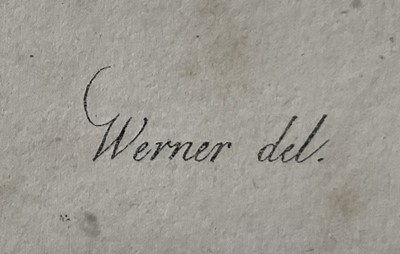 Werner del.